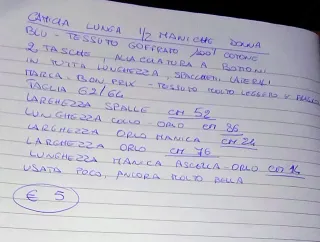 CAMICIA LUNGA 1/2 MANICHE DONNA
BLU - TESSUTO GOFFRATO 100% COTONE
2 TASCHE, ALLACCIATURA A BOTTONI
IN TUTTA LUNGHEZZA, SPACCHETTI LATERALI
MARCA - BON PRIX - TESSUTO MOLTO LEGGERO E
TAGLIA 62/64
LARGHEZZA SPALLE CM 52
LUNGHEZZA COLLO - ORLO CM 86
LARGHEZZA ORLO MANICA CM 24
LARGHEZZA ORLO CM 76
LUNGHEZZA MANICA ASCELLA - ORLO CM 14
USATA POCO, ANCORA MOLTO BELLA
€ 5